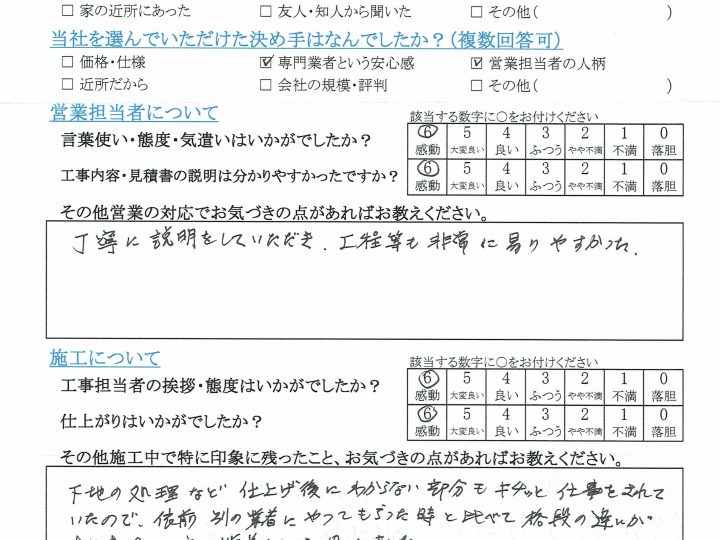 □ 家の近所にあった □ 友人・知人から聞いた □ その他( )
当社を選んでいただけた決め手はなんでしたか？(複数回答可)
□ 価格・仕様 ☑ 専門業者という安心感 ☑ 営業担当者の人柄
□ 近所だから □ 会社の規模・評判 □ その他( )
営業担当者について 該当する数字に○をお付けください
言葉使い・態度・気遣いはいかがでしたか？ 6 5 4 3 2 1 0
感動 大変良い 良い ふつう やや不満 不満 落胆
工事内容・見積書の説明は分かりやすかったですか？ 6 5 4 3 2 1 0
感動 大変良い 良い ふつう やや不満 不満 落胆
その他営業の対応でお気づきの点があればお教えください。
丁寧に説明をしていただき、工程等も非常に易りやすかった。
施工について 該当する数字に○をお付けください
工事担当者の挨拶・態度はいかがでしたか？ 6 5 4 3 2 1 0
感動 大変良い 良い ふつう やや不満 不満 落胆
仕上がりはいかがでしたか？ 6 5 4 3 2 1 0
感動 大変良い 良い ふつう やや不満 不満 落胆
その他施工中で特に印象に残ったこと、お気づきの点があればお教えください。
下地の処理など仕上げ後にわからない部分もキチッと仕事をされて
いたので、依前 別の業者にやってもらった時と比べて格段の違いが